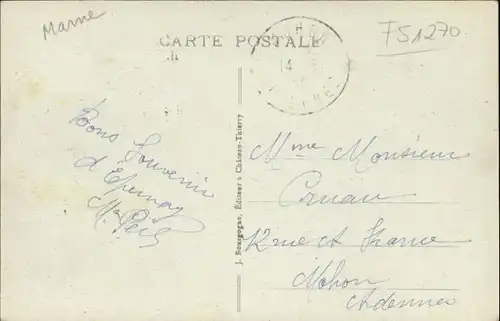 Marne
CARTE POSTALE
FS1270
14
Bons Souvenir
d'Epernay
J. Bourgogne, Éditeur à Château-Thierry
Mme Monsieur
12 rue de France
Mohon
Ardennes